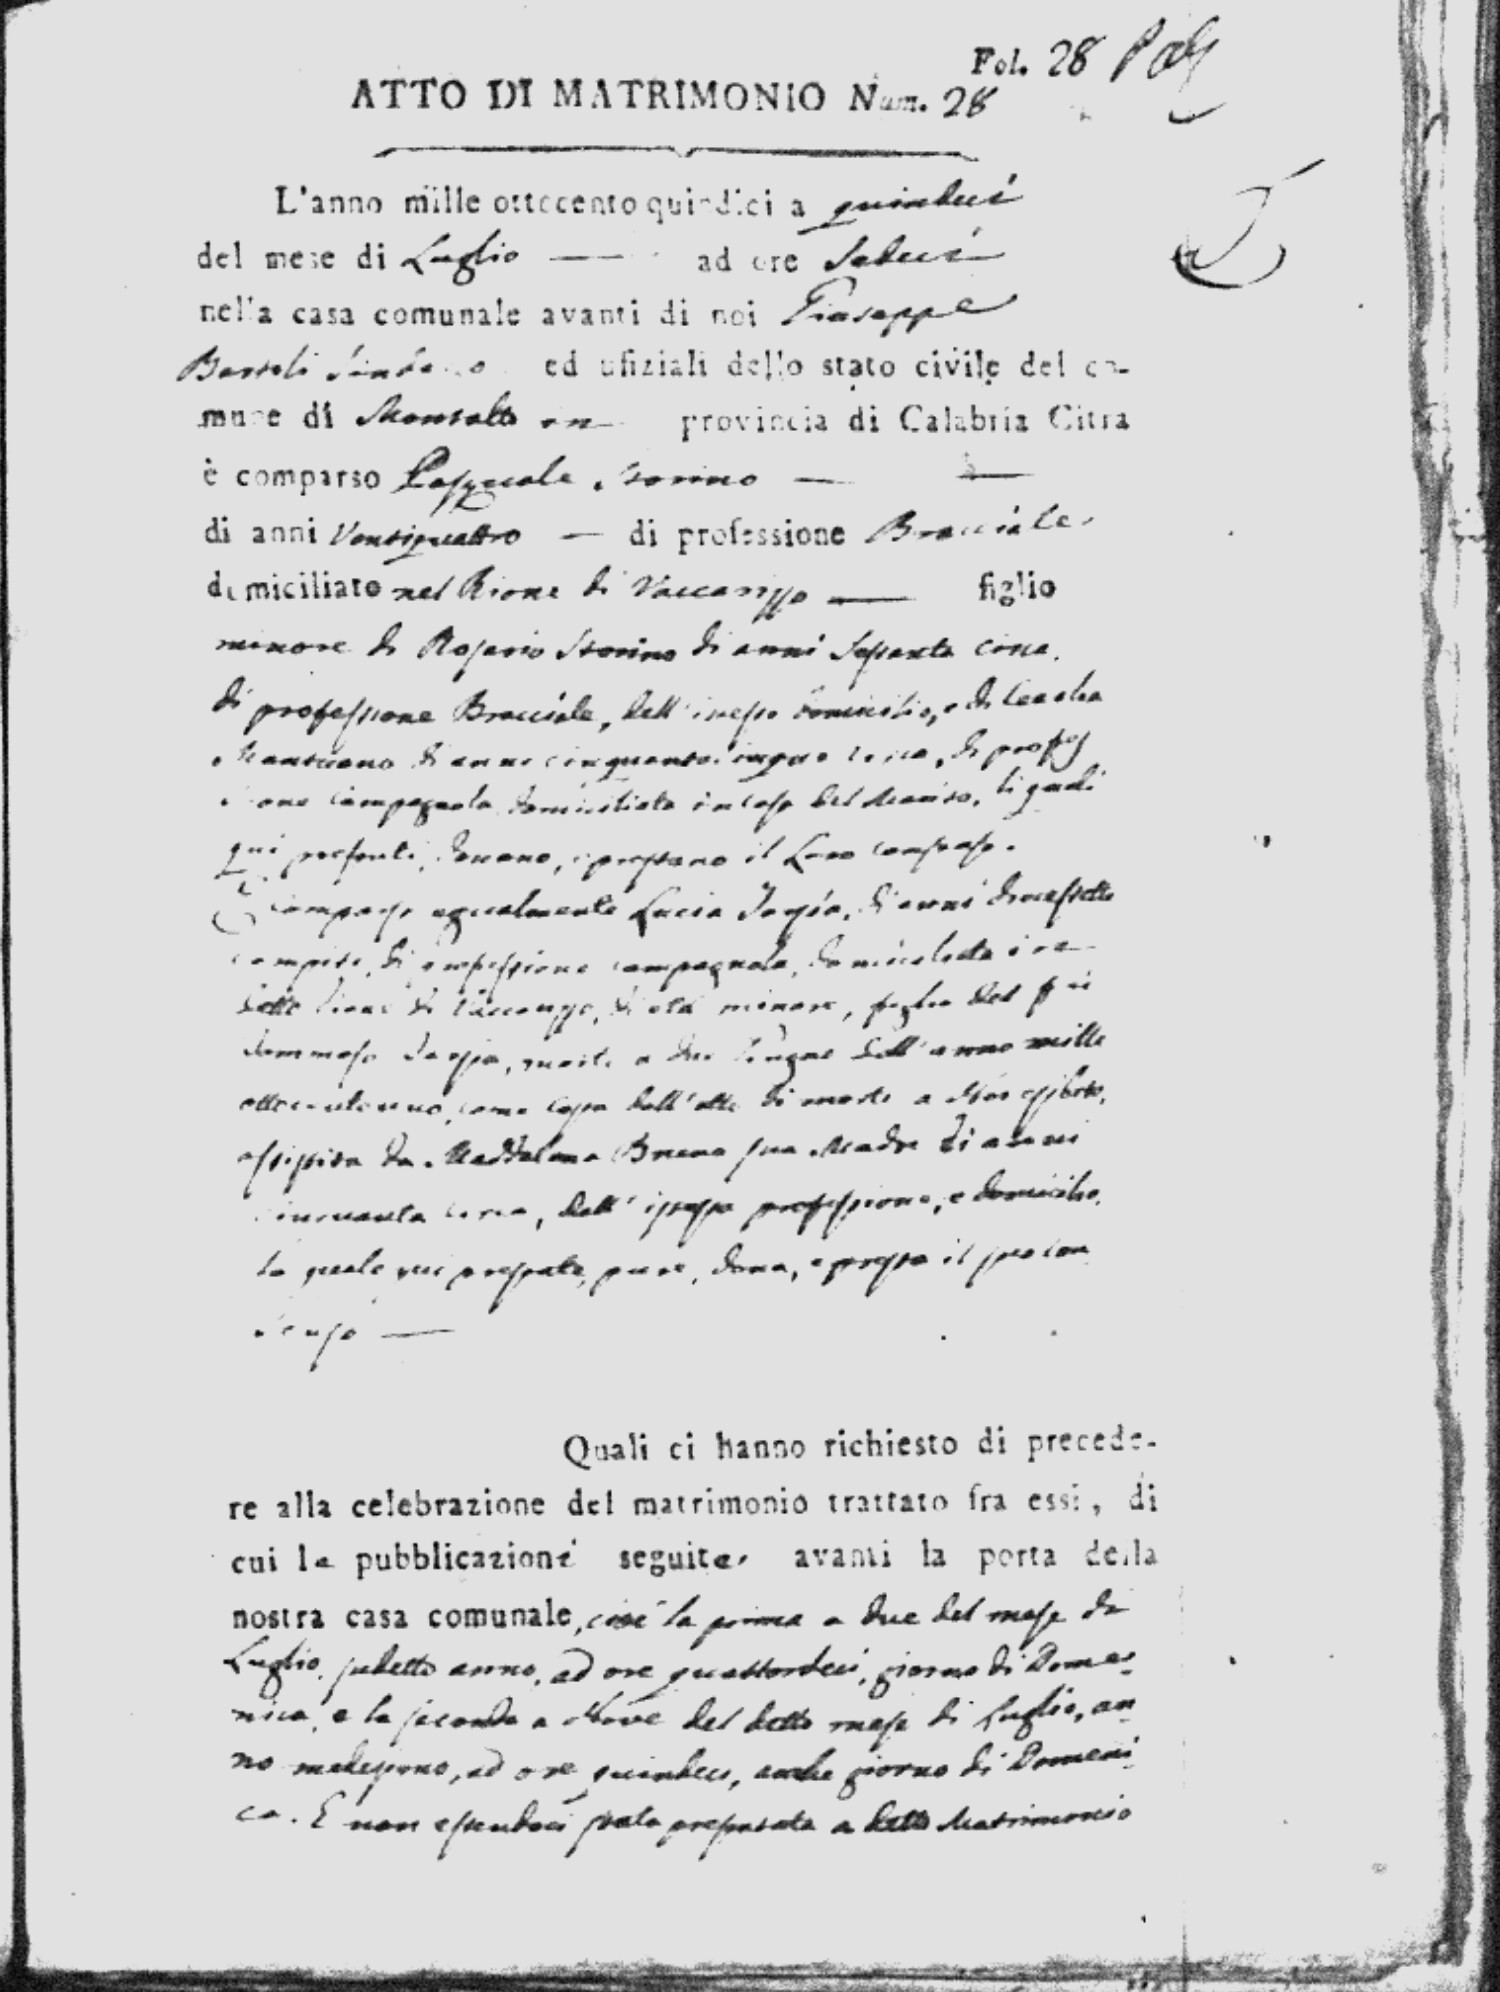 Fol. 28
ATTO DI MATRIMONIO Num. 28
L'anno mille ottocento quindici a quindeci
del mese di Luglio — ad ore Sedeci
nella casa comunale avanti di noi Giuseppe
Bartoli Sindaco ed ufiziali dello stato civile del co-
mune di Montalto in provincia di Calabria Citra
è comparso Pasquale Storino —
di anni Ventiquattro — di professione Bracciale
domiciliato nel Rione di Vaccarizzo — figlio
minore di Rosario Storino di anni Sessanta circa,
di professione Bracciale, dell'istesso domicilio, e di
di anni cinquantacinque circa, di profes
sione Campagnola domiciliata in casa del Marito, li quali
qui presenti, donano, e prestano il Loro consenso.
È comparsa egualmente Lucia di anni diecessette
compiti, di professione campagnola, domiciliata in
detto Rione di Vaccarizzo, di età minore, figlia del fu
Tommaso morto a due Giugno dell'anno mille
ottocentouno, come copia dell'atto di morte a Noi esibito,
assistita da Maddalena Bruno sua Madre di anni
cinquanta circa, dell'istessa professione, e domicilio,
la quale qui presente, pure, dona, e presta il suo con
senso —
Quali ci hanno richiesto di precede-
re alla celebrazione del matrimonio trattato fra essi, di
cui le pubblicazioni seguite avanti la porta della
nostra casa comunale, cioè la prima a due del mese di
Luglio, sudetto anno, ad ore quattordeci, giorno di Dome-
nica, e la seconda a Nove del detto mese di Luglio, an-
no medesimo, ad ore quindeci, anche giorno di Domeni-
ca. E non essendoci stata presentata a detto Matrimonio